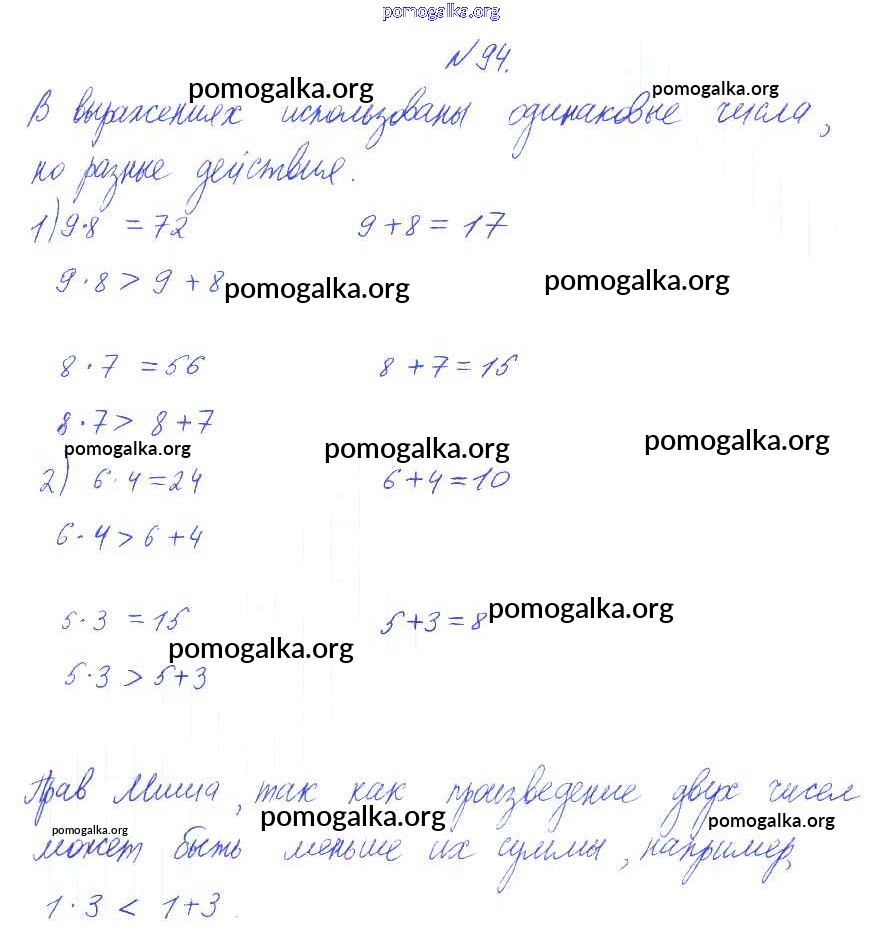 pomogalka.org
N 94.
pomogalka.org pomogalka.org
В выражениях использованы одинаковые числа,
но разные действия.
1) 9·8 = 72 9 + 8 = 17
9 · 8 > 9 + 8 pomogalka.org pomogalka.org
8 · 7 = 56 8 + 7 = 15
8 · 7 > 8 + 7
pomogalka.org pomogalka.org pomogalka.org
2) 6 · 4 = 24 6 + 4 = 10
6 · 4 > 6 + 4
5 · 3 = 15 5 + 3 = 8 pomogalka.org
pomogalka.org
5 · 3 > 5 + 3
Прав Миша, так как произведение двух чисел
pomogalka.org pomogalka.org pomogalka.org
может быть меньше их суммы, например,
1 · 3 < 1 + 3.